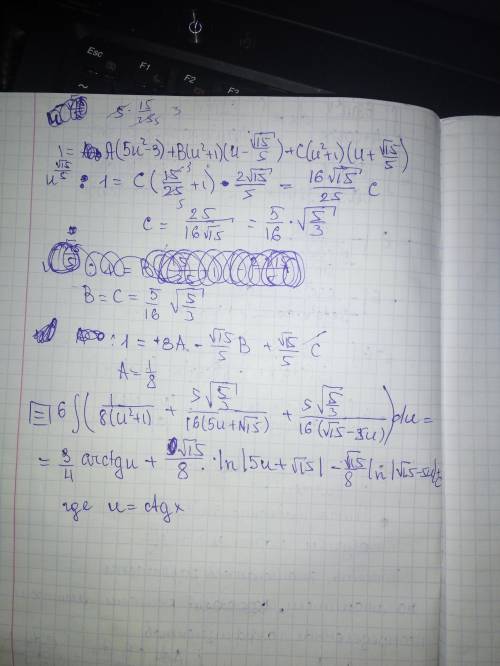 Esc
F1
F2
F3
~
5 · 15/25 3
1 = A(5u²-3)+B(u²+1)(u-√15/5)+C(u²+1)(u+√15/5)
√15/5 : 1 = C(15/25+1) · 2√15/5 = 16√15/25 C
C = 25/16√15 = 5/16 · √5/3
B = C = 5/16 √5/3
: 1 = +8A - √15/5 B + √15/5 C
A = 1/8
≡ 6∫(1/8(u²+1) + 5√5/3/16(5u+√15) + 5√5/3/16(√15-5u))du =
= 3/4 arctgu + √15/8 · ln|5u+√15| - √15/8 ln|√15-5u|+C
где u = ctgx